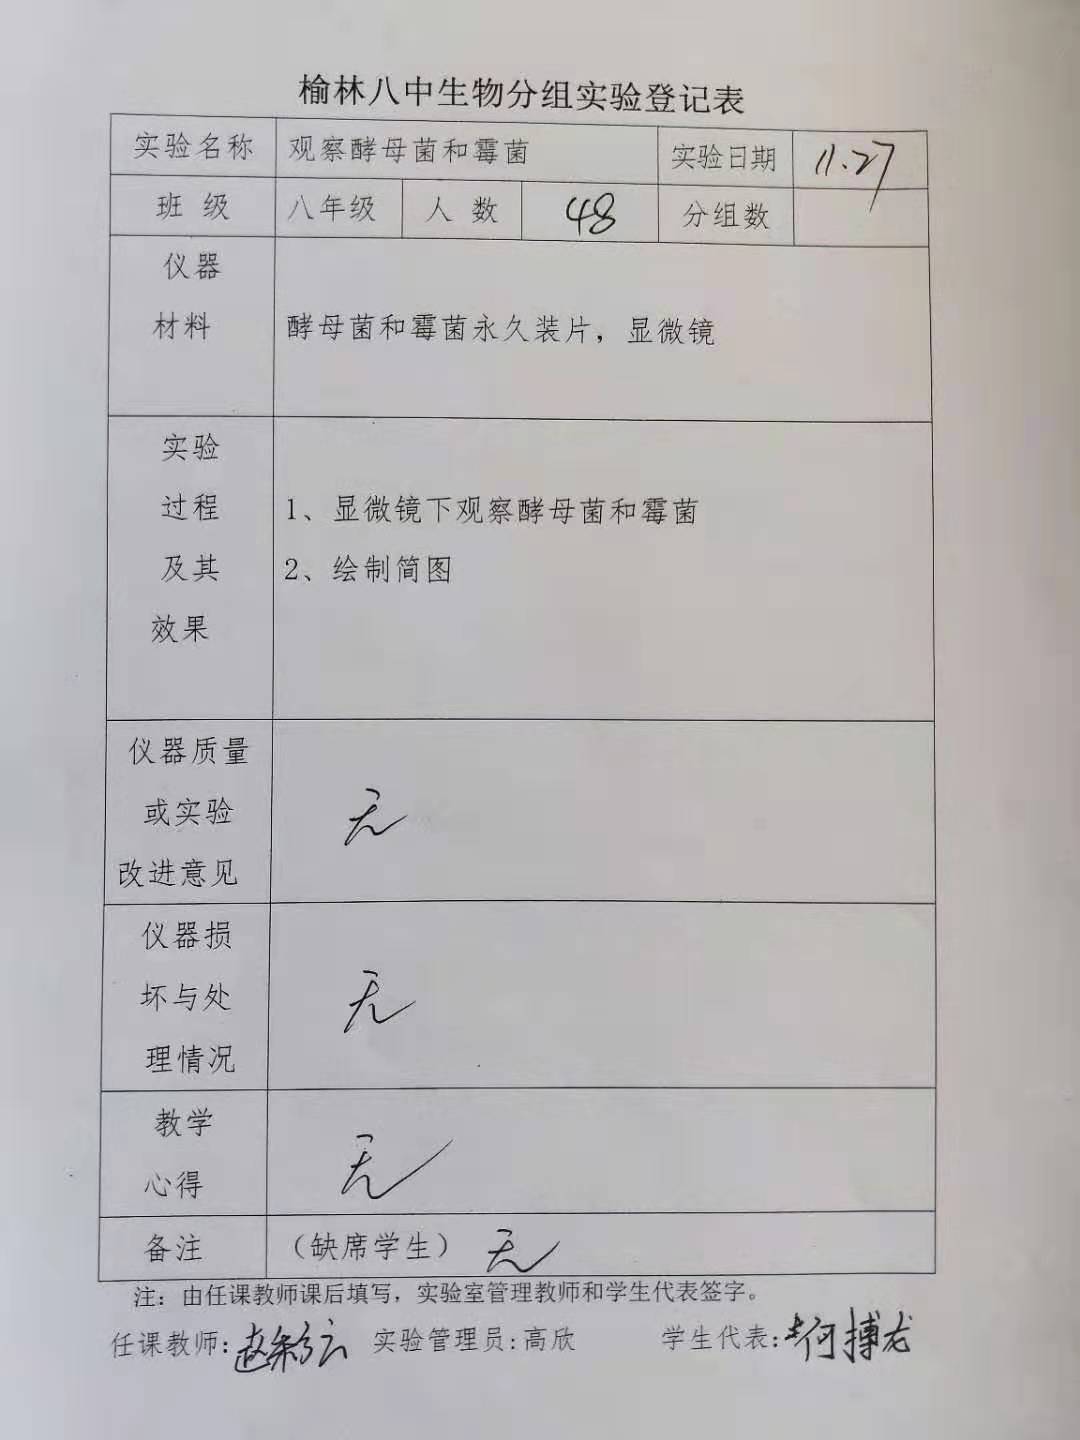 榆林八中生物分组实验登记表
实验名称 观察酵母菌和霉菌 实验日期 11.27
班 级 八年级 人 数 48 分组数
仪器
材料 酵母菌和霉菌永久装片，显微镜
实验
过程 1、显微镜下观察酵母菌和霉菌
及其 2、绘制简图
效果
仪器质量
或实验 无
改进意见
仪器损
坏与处 无
理情况
教学
心得 无
备注 （缺席学生） 无
注：由任课教师课后填写，实验室管理教师和学生代表签字。
任课教师: 实验管理员:高欣 学生代表: 何搏龙